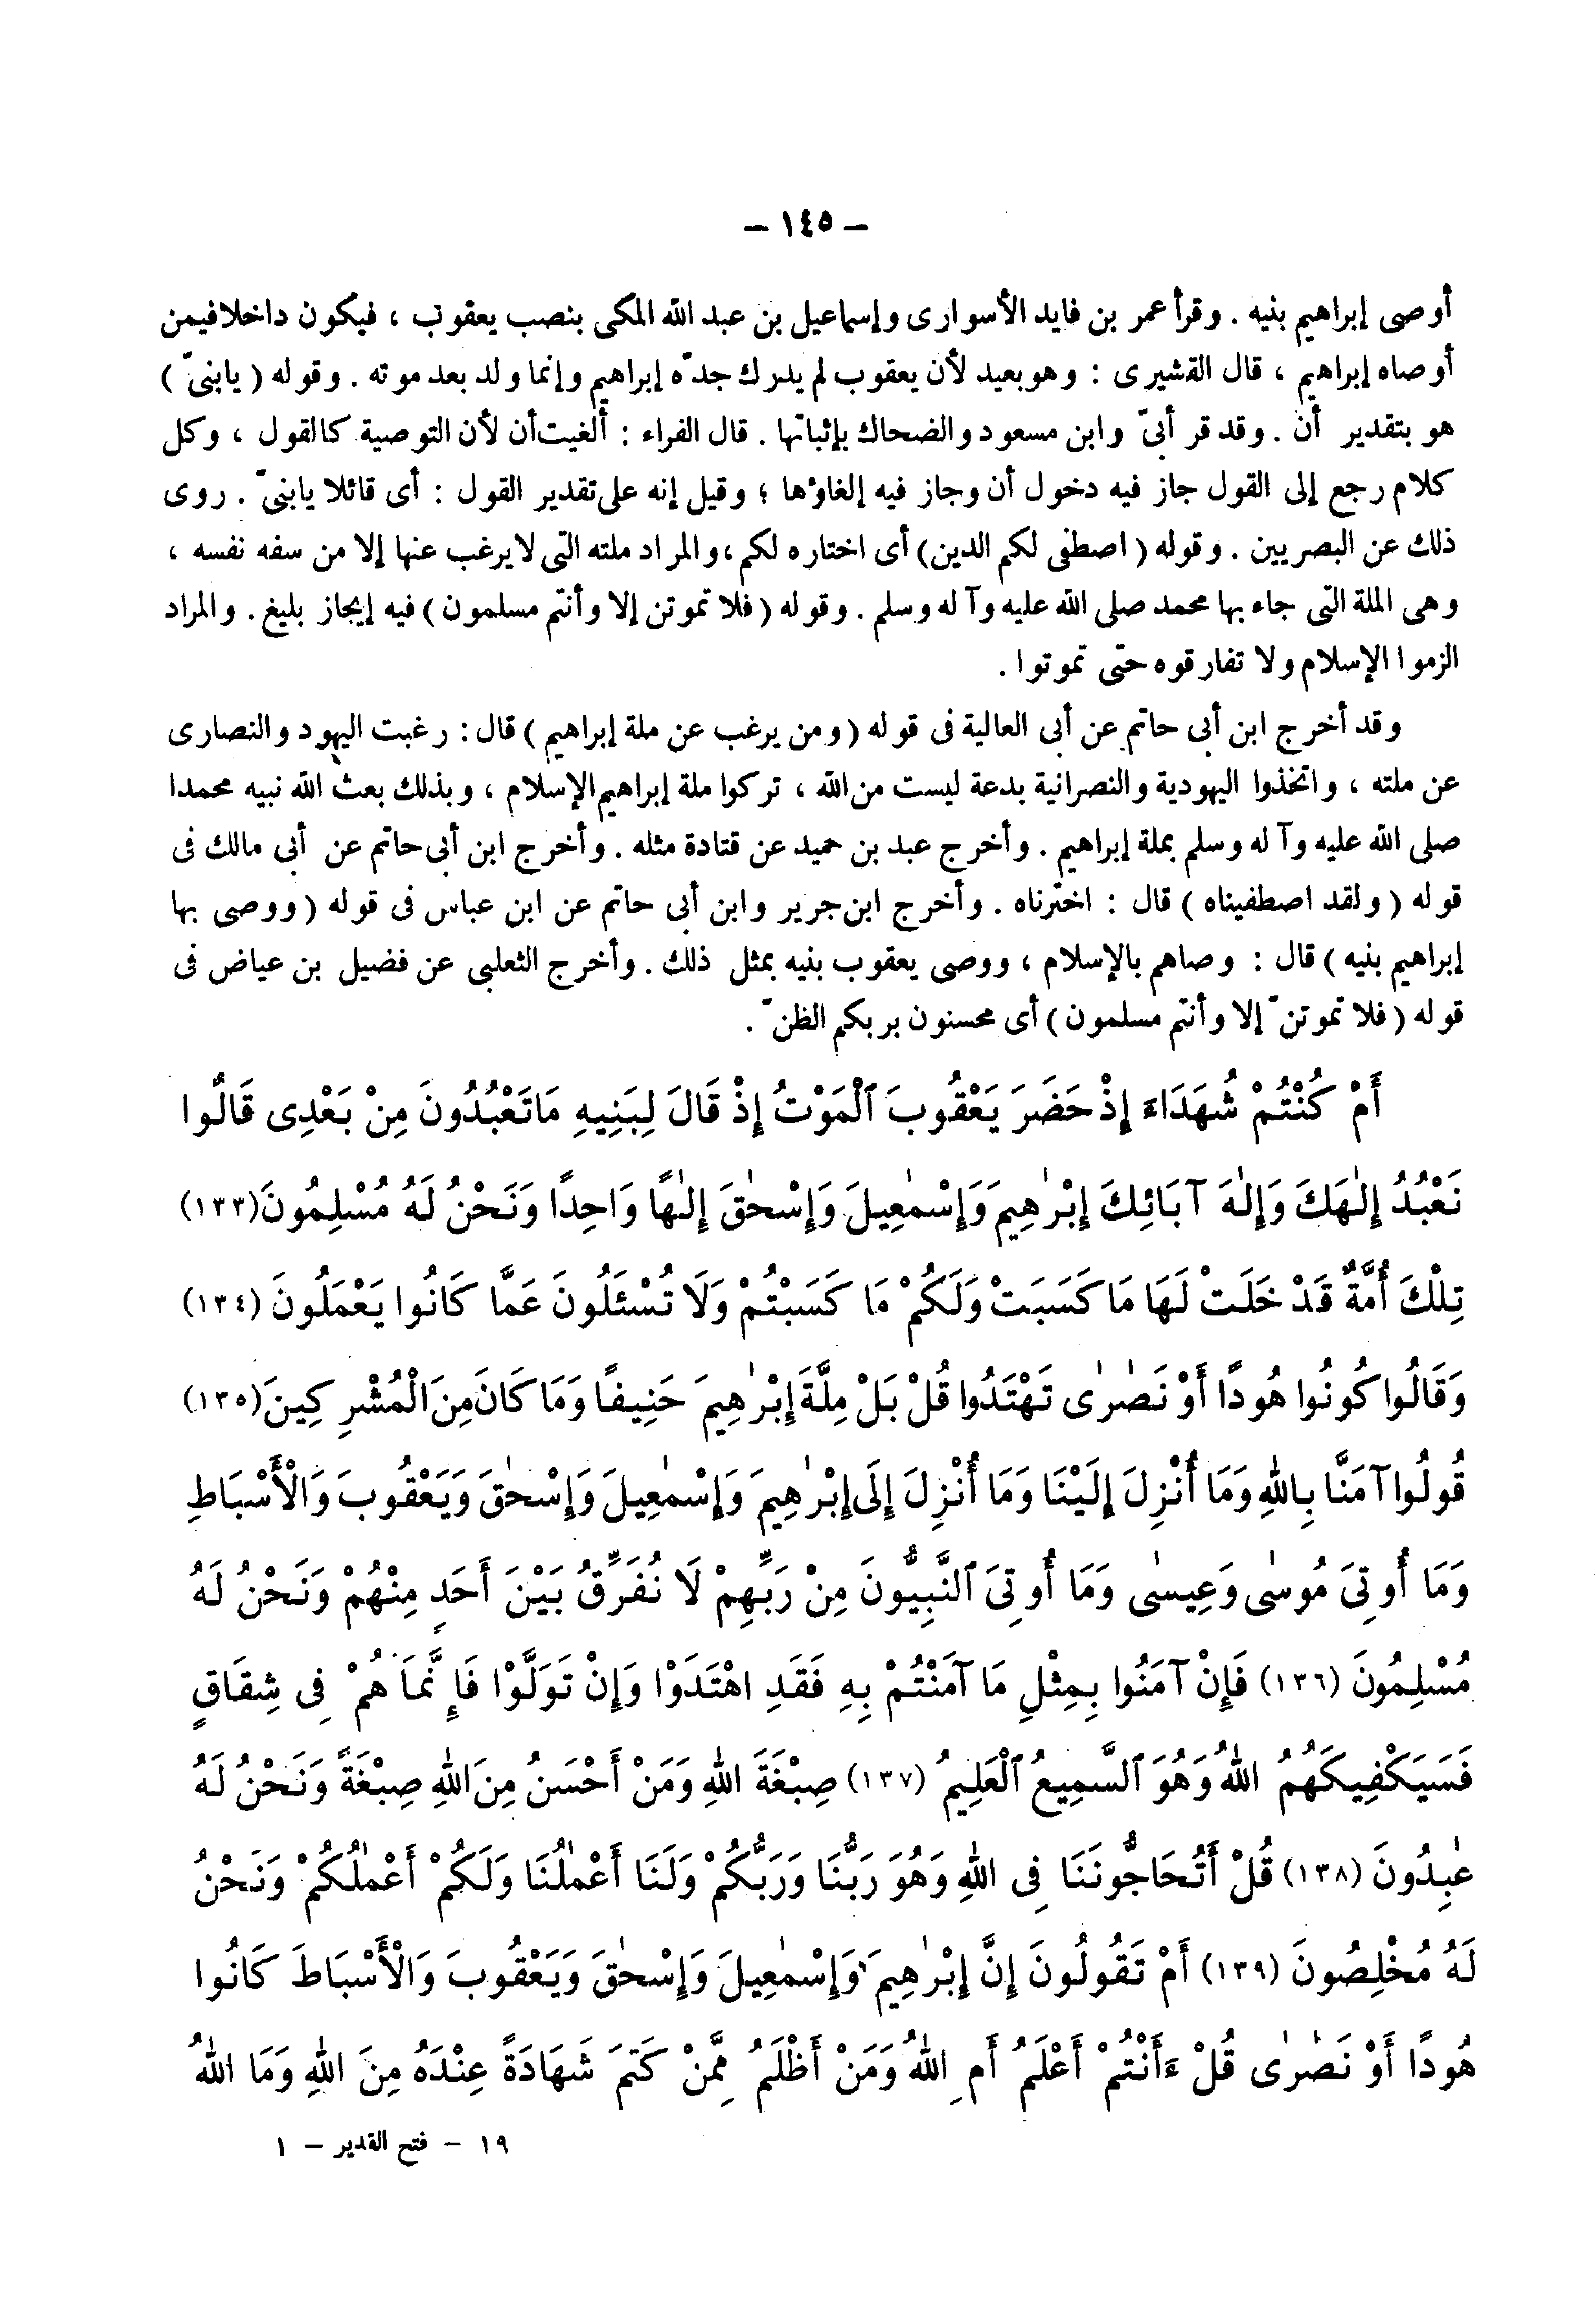 – ١٤٥ –
أوصى إبراهيم بنيه . وقرأ عمر بن فايد الأسوارى وإسماعيل بن عبد الله المكى بنصب يعقوب ، فيكون داخلا فيمن
أوصاه إبراهيم ، قال القشيرى : وهو بعيد لأن يعقوب لم يدرك جدّه إبراهيم وإنما ولد بعد موته . وقوله ( يابنىّ )
هو بتقدير أن . وقد قر أبىّ وابن مسعود والضحاك بإثباتها . قال الفراء : ألغيت أن لأن التوصية كالقول ، وكل
كلام رجع إلى القول جاز فيه دخول أن وجاز فيه إلغاؤها ؛ وقيل إنه على تقدير القول : أى قائلا يابنىّ . روى
ذلك عن البصريين . وقوله ( اصطفى لكم الدين ) أى اختاره لكم ، والمراد ملته التى لا يرغب عنها إلا من سفه نفسه ،
وهى الملة التى جاء بها محمد صلى الله عليه وآله وسلم . وقوله ( فلا تموتن إلا وأنتم مسلمون ) فيه إيجاز بليغ . والمراد
الزموا الإسلام ولا تفارقوه حتى تموتوا .
وقد أخرج ابن أبى حاتم عن أبى العالية فى قوله ( ومن يرغب عن ملة إبراهيم ) قال : رغبت اليهود والنصارى
عن ملته ، واتخذوا اليهودية والنصرانية بدعة ليست من الله ، تركوا ملة إبراهيم الإسلام ، وبذلك بعث الله نبيه محمدا
صلى الله عليه وآله وسلم بملة إبراهيم . وأخرج عبد بن حميد عن قتادة مثله . وأخرج ابن أبى حاتم عن أبى مالك فى
قوله ( ولقد اصطفيناه ) قال : اخترناه . وأخرج ابن جرير وابن أبى حاتم عن ابن عباس فى قوله ( ووصى بها
إبراهيم بنيه ) قال : وصاهم بالإسلام ، ووصى يعقوب بنيه بمثل ذلك . وأخرج الثعلبى عن فضيل بن عياض فى
قوله ( فلا تموتنّ إلا وأنتم مسلمون ) أى محسنون بربكم الظنّ .
أَمْ كُنْتُمْ شُهَدَاءَ إِذْ حَضَرَ يَعْقُوبَ ٱلْمَوْتُ إِذْ قَالَ لِبَنِيهِ مَا تَعْبُدُونَ مِنْ بَعْدِى قَالُوا
نَعْبُدُ إِلٰهَكَ وَإِلٰهَ آبَائِكَ إِبْرٰهِيمَ وَإِسْمٰعِيلَ وَإِسْحٰقَ إِلٰهًا وَاحِدًا وَنَحْنُ لَهُ مُسْلِمُونَ (١٣٣)
تِلْكَ أُمَّةٌ قَدْ خَلَتْ لَهَا مَا كَسَبَتْ وَلَكُمْ مَا كَسَبْتُمْ وَلَا تُسْئَلُونَ عَمَّا كَانُوا يَعْمَلُونَ (١٣٤)
وَقَالُوا كُونُوا هُودًا أَوْ نَصٰرٰى تَهْتَدُوا قُلْ بَلْ مِلَّةَ إِبْرٰهِيمَ حَنِيفًا وَمَا كَانَ مِنَ الْمُشْرِكِينَ (١٣٥)
قُولُوا آمَنَّا بِاللهِ وَمَا أُنْزِلَ إِلَيْنَا وَمَا أُنْزِلَ إِلَى إِبْرٰهِيمَ وَإِسْمٰعِيلَ وَإِسْحٰقَ وَيَعْقُوبَ وَالْأَسْبَاطِ
وَمَا أُوتِىَ مُوسٰى وَعِيسٰى وَمَا أُوتِىَ ٱلنَّبِيُّونَ مِنْ رَبِّهِمْ لَا نُفَرِّقُ بَيْنَ أَحَدٍ مِنْهُمْ وَنَحْنُ لَهُ
مُسْلِمُونَ (١٣٦) فَإِنْ آمَنُوا بِمِثْلِ مَا آمَنْتُمْ بِهِ فَقَدِ اهْتَدَوْا وَإِنْ تَوَلَّوْا فَإِنَّمَا هُمْ فِى شِقَاقٍ
فَسَيَكْفِيكَهُمُ اللهُ وَهُوَ ٱلسَّمِيعُ ٱلْعَلِيمُ (١٣٧) صِبْغَةَ اللهِ وَمَنْ أَحْسَنُ مِنَ اللهِ صِبْغَةً وَنَحْنُ لَهُ
عٰبِدُونَ (١٣٨) قُلْ أَتُحَاجُّونَنَا فِى اللهِ وَهُوَ رَبُّنَا وَرَبُّكُمْ وَلَنَا أَعْمٰلُنَا وَلَكُمْ أَعْمٰلُكُمْ وَنَحْنُ
لَهُ مُخْلِصُونَ (١٣٩) أَمْ تَقُولُونَ إِنَّ إِبْرٰهِيمَ وَإِسْمٰعِيلَ وَإِسْحٰقَ وَيَعْقُوبَ وَالْأَسْبَاطَ كَانُوا
هُودًا أَوْ نَصٰرٰى قُلْ ءَأَنْتُمْ أَعْلَمُ أَمِ اللهُ وَمَنْ أَظْلَمُ مِمَّنْ كَتَمَ شَهَادَةً عِنْدَهُ مِنَ اللهِ وَمَا اللهُ
١٩ – فتح القدير – ١